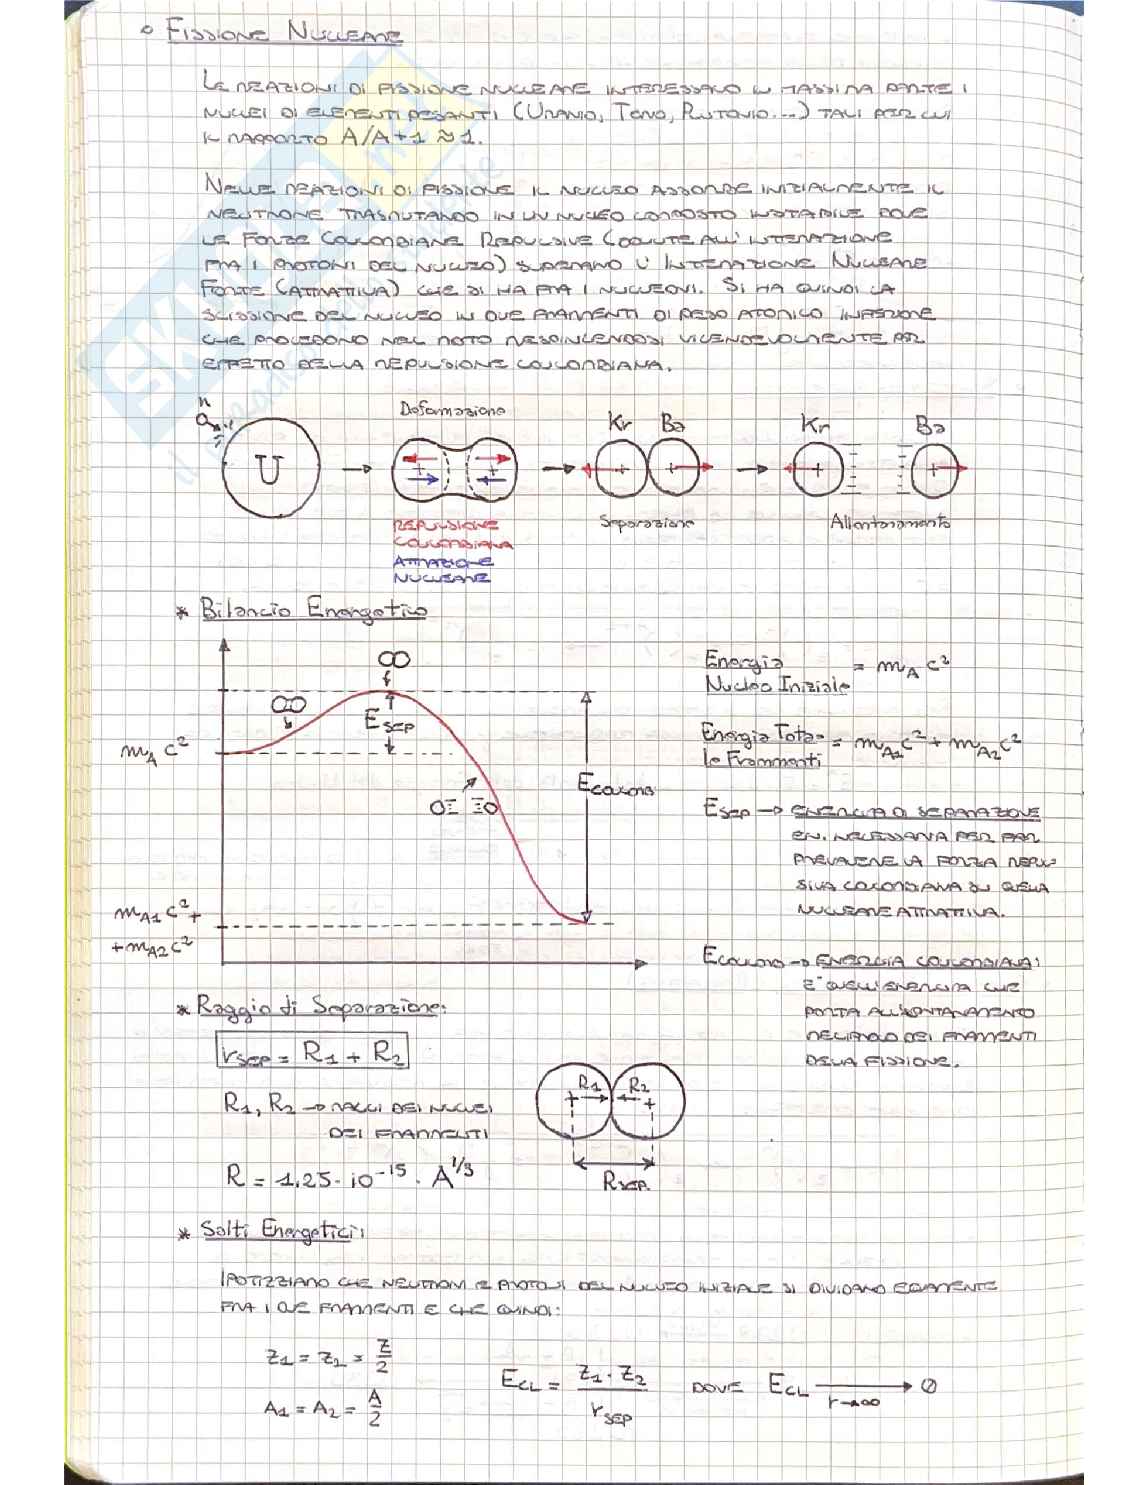 ° FISSIONE NUCLEARE
LE REAZIONI DI FISSIONE NUCLEARE INTERESSANO IN MASSIMA PARTE I
NUCLEI DI ELEMENTI PESANTI (URANIO, TORIO, PLUTONIO...) TALI PER CUI
IL RAPPORTO A/A+1 ≈ 1.
NELLE REAZIONI DI FISSIONE IL NUCLEO ASSORBE INIZIALMENTE IL
NEUTRONE TRASMUTANDO IN UN NUCLEO COMPOSTO INSTABILE DOVE
LE FORZE COULOMBIANE REPULSIVE (DOVUTE ALL'INTERAZIONE
FRA I PROTONI DEL NUCLEO) SUPERANO L'INTERAZIONE NUCLEARE
FORTE (ATTRATTIVA) CHE SI HA FRA I NUCLEONI. SI HA QUINDI LA
SCISSIONE DEL NUCLEO IN DUE FRAMMENTI DI PESO ATOMICO INFERIORE
CHE PROCEDONO NEL MOTO RESPINGENDOSI VICENDEVOLMENTE PER
EFFETTO DELLA REPULSIONE COULOMBIANA.
n
U
Deformazione
Kr Ba
Kr Ba
REPULSIONE
COULOMBIANA
ATTRAZIONE
NUCLEARE
Separazione
Allontanamento
* Bilancio Energetico
m_A c²
E_SEP
E_COULOMB
m_A1 c² +
+ m_A2 c²
Energia
Nucleo Iniziale = m_A c²
Energia Tota-
le Frammenti = m_A1 c² + m_A2 c²
E_SEP → ENERGIA DI SEPARAZIONE
EN. NECESSARIA PER FAR
PREVALERE LA FORZA REPUL-
SIVA COULOMBIANA SU QUELLA
NUCLEARE ATTRATTIVA.
E_COULOMB → ENERGIA COULOMBIANA:
E' QUELL'ENERGIA CHE
PORTA ALL'ALLONTANAMENTO
RECIPROCO DEI FRAMMENTI
DELLA FISSIONE.
* Raggio di Separazione:
r_SEP = R₁ + R₂
R₁, R₂ → RAGGI DEI NUCLEI
DEI FRAMMENTI
R = 1,25 · 10⁻¹⁵ · A^1/3
R₁ R₂
R_SEP.
* Salti Energetici:
IPOTIZZIAMO CHE NEUTRONI E PROTONI DEL NUCLEO INIZIALE SI DIVIDANO EQUAMENTE
FRA I DUE FRAMMENTI E CHE QUINDI:
Z₁ = Z₂ = Z/2
A₁ = A₂ = A/2
E_CL = Z₁ · Z₂ / r_SEP DOVE E_CL → 0
r→∞